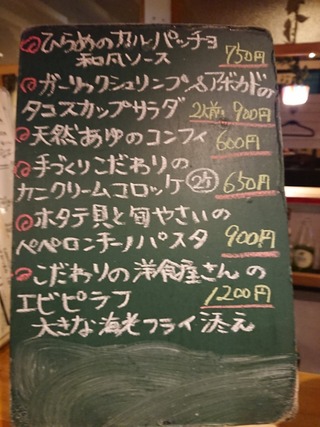 ひらめのカルパッチョ
和風ソース 750円
ガーリックシュリンプ&アボカドの
タコスカップサラダ 2人前 900円
天然あゆのコンフィ 600円
手づくりこだわりの
カニクリームコロッケ 2ケ 650円
ホタテ貝と旬やさいの
ペペロンチーノパスタ 900円
こだわりの洋食屋さんの
エビピラフ 1200円
大きな海老フライ添え